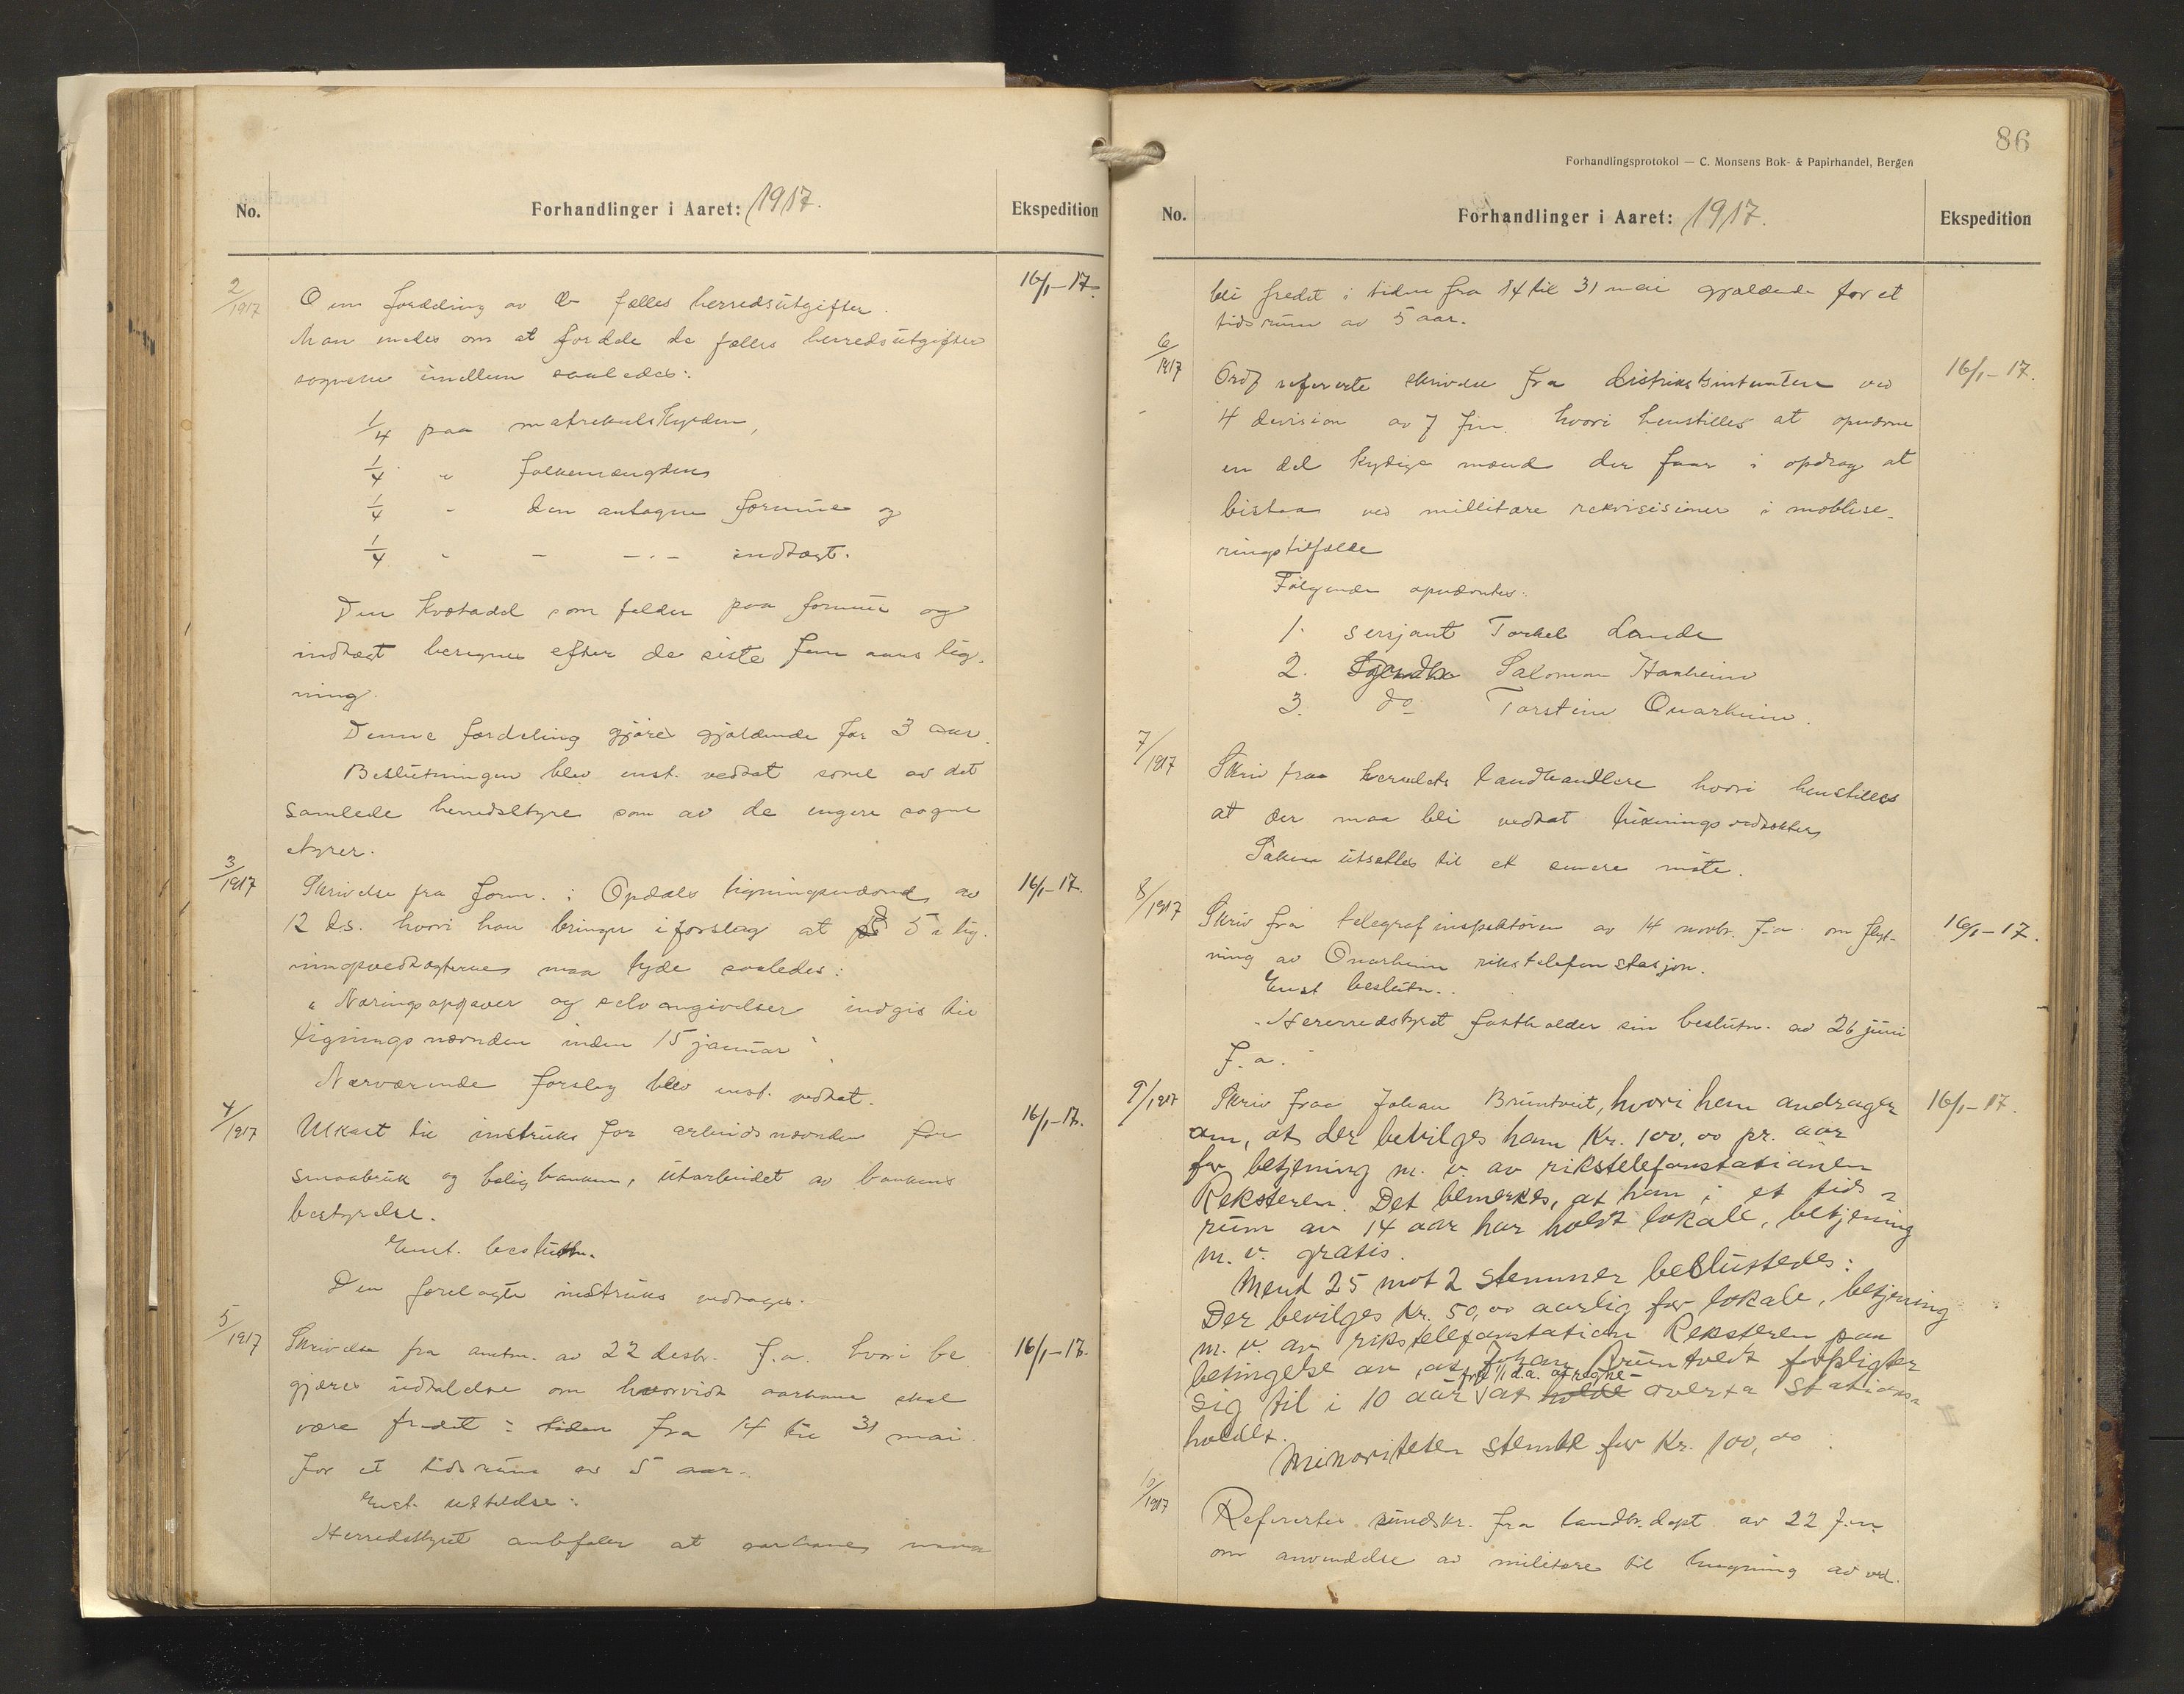 No.
Forhandlinger i Aaret: 1917.
Ekspedition
2/1917
16/1-17.
Om fordeling av de fælles herredsutgifter.
Man enedes om at fordele de fælles herredsutgifter
sognene imellem saaledes:
1/4 paa matrikulskylden,
1/4 " folkemængden
1/4 - den antagne formue og
1/4 - - -.- indtægt.
Den kvotadel som falder paa formue og
indtægt beregnes efter de siste fem aars lig-
ning.
Denne fordeling gjøres gjældende for 3 aar.
Beslutningen blev enst. vedtat sovel av det
samlede herredsstyre som av de engere sogne
styrer.
3/1917
16/1-17.
Skrivelse fra form. i Opdals ligningsnævnd av
12 ds. hvori han bringer i forslag at § 5 i lig-
ningsvedtægterne maa lyde saaledes:
"Næringsopgaver og selvangivelser indgis til
ligningsnævnden inden 15 januar".
Nærværende forslag blev enst. vedtat.
4/1917
16/1-17.
Utkast til instruks for arbeidsnævnden for
smaabruk og boligbanken, utarbeidet av bankens
bestyrelse.
Enst. beslutn.
Den forelagte instruks vedtages.
5/1917
16/1-17.
Skrivelse fra amtm. av 22 desbr. f.a. hvori be
gjæres uttalelse om hvorvidt aarhane skal
være fredet i tiden fra 14 til 31 mai
for et tidsrum av 5 aar.
Enst. uttalelse:
Herredsstyret anbefaler at aarhanen maa
86
Forhandlingsprotokol — C. Monsens Bok- & Papirhandel, Bergen
No.
Forhandlinger i Aaret: 1917.
Ekspedition
bli fredet i tiden fra 14 til 31 mai gjældende for et
tidsrum av 5 aar.
6/1917
16/1-17.
Ordf refererte skrivelse fra distriktsintendanten ved
4 division av 7 f.m. hvori henstilles at opnævne
en del kyndige mænd der faar i opdrag at
bistaa ved millitære rekvisisioner i mobilise-
ringstilfælde
Følgende opnævntes:
1. sersjant Torkel Lande
2. Salomon Haaheim
3. do Torstein Onarheim.
7/1917
Skriv fraa herredets landhandlere hvori henstilles
at der maa bli vedtat lukningsvedtækter
Saken utsættes til et senere møte.
8/1917
16/1-17.
Skriv fra telegrafinspektøren av 14 novbr. f.a. om flyt-
ning av Onarheim rikstelefonstasjon.
Enst beslutn..
"Hererredsstyret fastholder sin beslutn. av 26 juni
f.a.
9/1917
16/1-17.
Skriv fraa Johan Bruntveit, hvori han andrager
om, at der bevilges ham Kr. 100,00 pr. aar
for betjening m. v. av rikstelefonstationen
Reksteren. Det bemerkes, at han i et tids-
rum av 14 aar har holdt lokale, betjening
m. v. gratis.
Mend 25 mot 2 stemmer beslustedes:
Der bevilges Kr. 50,00 aarlig for lokale, betjening
m. v. av rikstelefonstation Reksteren paa
betingelse av, at Johan Bruntvedt forpligter
fra 1/1 d.a. at regne -
sig til i 10 aar at holde overta stations-
holdet.
Minoriteten stemte for Kr. 100,00.
10/1917
Refererter rundskr. fra landbr.dept av 22 f.m.
om anvendelse av militære til hugning av ved.